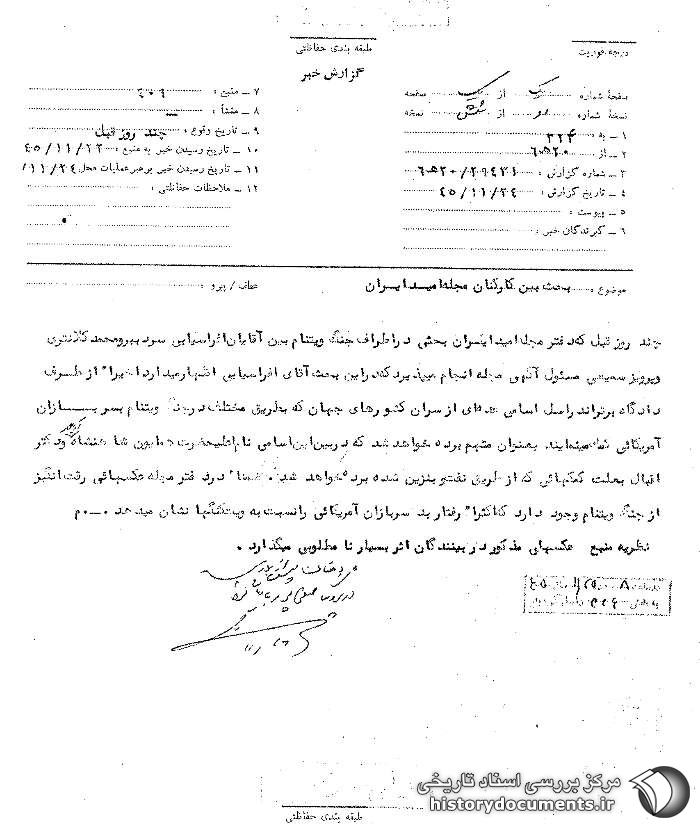 طبقه بندی حفاظتی
درجه فوریت
گزارش خبر
صفحهٔ شماره یک از یک صفحه
نسخهٔ شماره دو از شش نسخه
۱ ـ به : ۳۲۴
۲ ـ از : ۲۰ه۶
۳ ـ شماره گزارش : ۲۹۴۳۱/۲۰ه۶
۴ ـ تاریخ گزارش : ۴۵/۱۱/۲۴
۵ ـ پیوست :
۶ ـ گیرندگان خبر :
۷ ـ منبع : ۴۰۶
۸ ـ منشأ : ـ
۹ ـ تاریخ وقوع : چند روز قبل
۱۰ ـ تاریخ رسیدن خبر به منبع : ۴۵/۱۱/۲۲
۱۱ ـ تاریخ رسیدن خبر برهبر عملیات محل /۱۱/۲۴
۱۲ ـ ملاحظات حفاظتی :
موضوع : بحث بین کارکنان مجله امید ایران
عطف / پیرو :
چند روز قبل که دفتر مجله امید ایران بحثی در اطراف جنگ ویتنام بین آقایان افراسیابی سردبیر و محمد کلانتری
و پرویز سمیعی مسئول آگهی مجله انجام میپذیرد که در این بحث آقای افراسیابی اظهار میدارد اخیرا" از طرف
دادگاه برتراند راسل اسامی عده‌ای از سران کشورهای جهان که بطریق مختلف در ویتنام بسربازان
آمریکائی کمک مینمایند بعنوان متهم برده خواهد شد که در بین این اسامی نام اعلیحضرت همایون شاهنشاه و دکتر
اقبال بعلت کمکهائی که از طریق نفت و بنزین شده برده خواهد شد . ضمنا" در دفتر مجله عکسهائی رقت انگیز
از جنگ ویتنام وجود دارد که اکثرا" رفتار بد سربازان آمریکائی را نسبت به ویتکنگها نشان میدهد ه ـ م
نظریه منبع عکسهای مذکور در بینندگان اثر بسیار نامطلوبی میگذارد .
طبقه بندی حفاظتی
مرکز بررسی اسناد تاریخی
historydocuments.ir